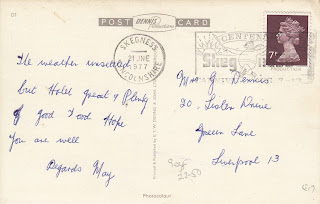 POST DENNIS CARD
SKEGNESS
LINCOLNSHIRE
21 JNE
1977
CENTENA
Skeg
7P
The weather unsettled
but Hotel great & Plenty
of good Food Hope
you are well
Regards May
Mrs G Dennis
20
Drive
Queen Lane
Liverpool 13
Photocolour